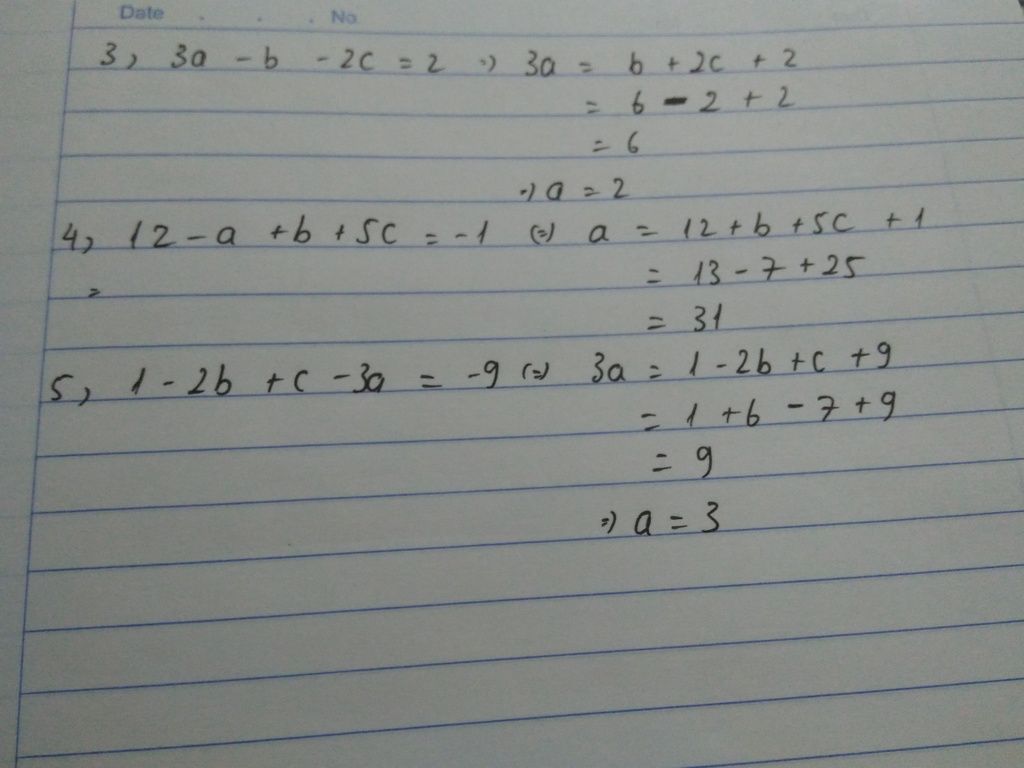 Date . . . No
3, 3a - b - 2c = 2 => 3a = b + 2c + 2
= 6 - 2 + 2
= 6
=> a = 2
4, 12 - a + b + 5c = -1 (=) a = 12 + b + 5c + 1
=
= 13 - 7 + 25
= 31
5, 1 - 2b + c - 3a = -9 (=) 3a = 1 - 2b + c + 9
= 1 + 6 - 7 + 9
= 9
=> a = 3